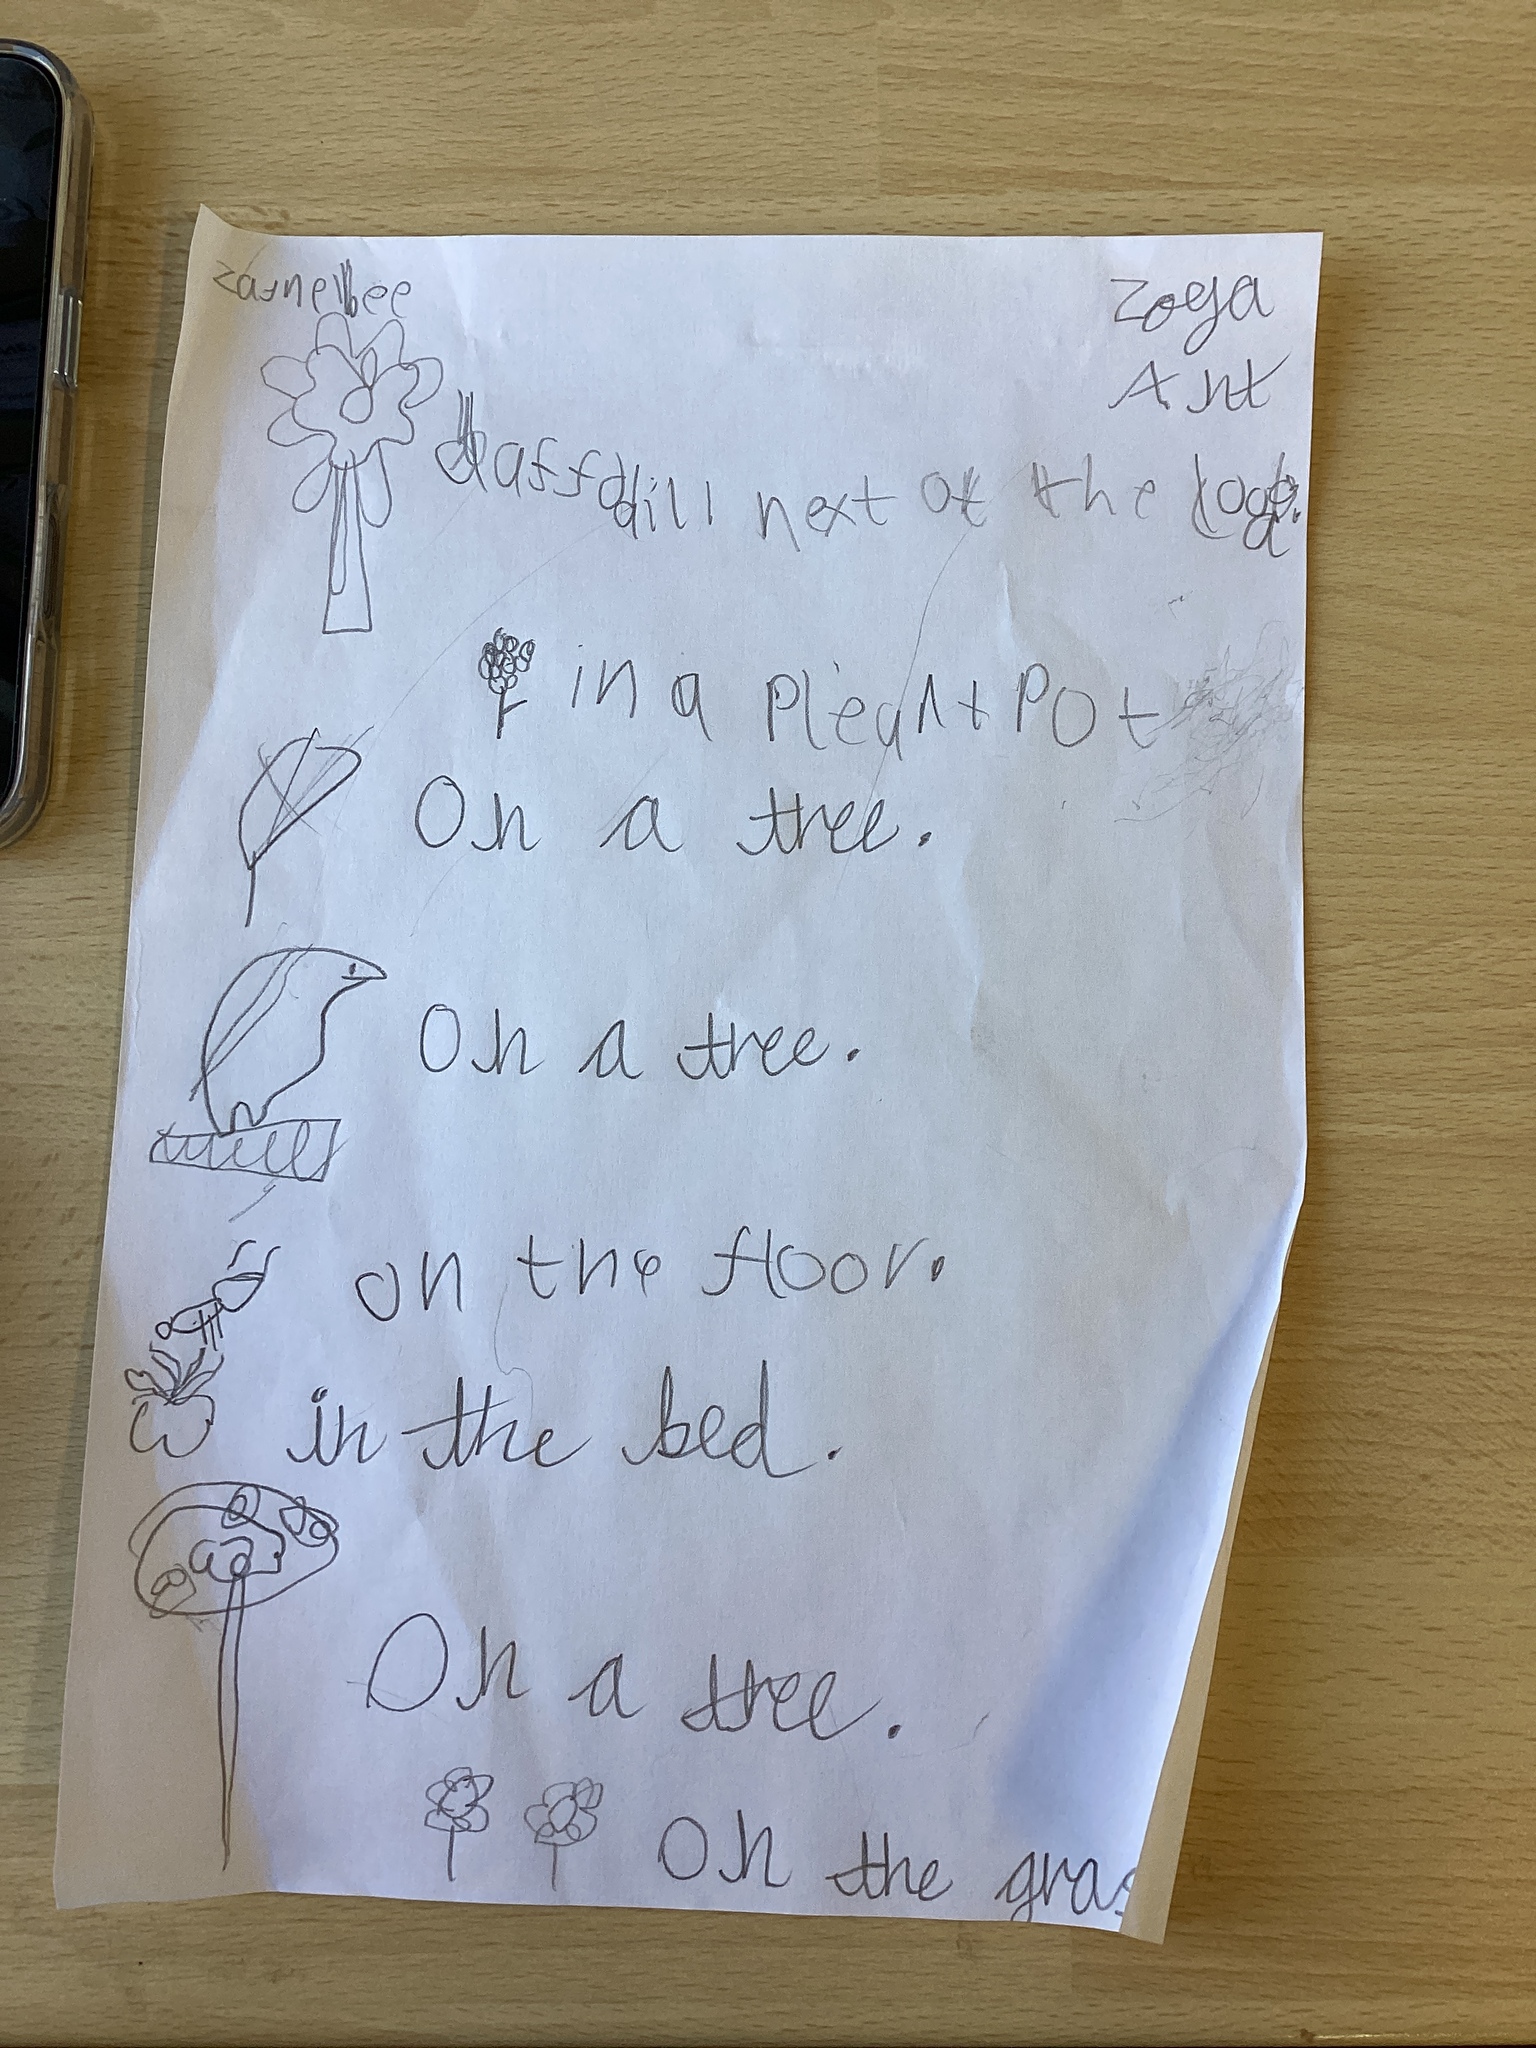 Zoya
Ant
daffodill next ot the
in a pleant pot
On a tree.
On a tree.
on the floor.
in the bed.
On a tree.
On the gras